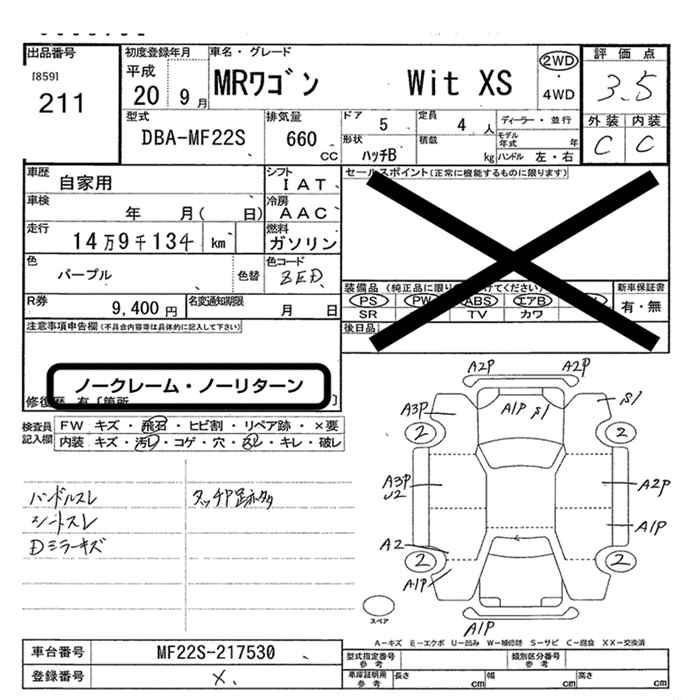 出品番号
[859]
211
初度登録年月
平成
20 9 月
車名・グレード
MRワゴン Wit XS
2WD
・
4WD
評 価 点
3.5
外装 内装
C C
型式
DBA-MF22S
排気量
660
CC
ドア 5
定員 4 人
ディーラー・並行
形状
ハッチB
積載
kg
モデル
年式 年
ハンドル 左・右
車歴
自家用
シフト
IAT
車検
年 月( 日)
冷房
AAC
走行
14万9千134 km
燃料
ガソリン
色
パープル
色替
色コード
ZED
R券
9,400 円
名変通知期限
月 日
セールスポイント(正常に機能するものに限ります)
装備品(純正品に限り
けてください)
PS PW ABS エアB
SR TV カワ
新車保証書
有・無
後日品
注意事項申告欄(不具合内容等は具体的に記入して下さい)
ノークレーム・ノーリターン
修復歴 有〔箇所 〕
検査員
記入欄
FW キズ・飛石・ヒビ割・リペア跡・×要
内装 キズ・汚レ・コゲ・穴・スレ・キレ・破レ
ハンドルスレ
シートスレ
Dミラーキズ
タッチP跡多々
A2P A2P
A3P A1P S1 S1
2 2
A3P
U2
A2P
A1P
A2
2 2
A1P
A1P
スペア
A−キズ E−エクボ U−凹み W−補修跡 S−サビ C−腐食 XX−交換済
車台番号
MF22S-217530
登録番号
×
型式指定番号
参考
類別区分番号
参考
車庫証明用
参考
長さ cm
幅 cm
高さ cm